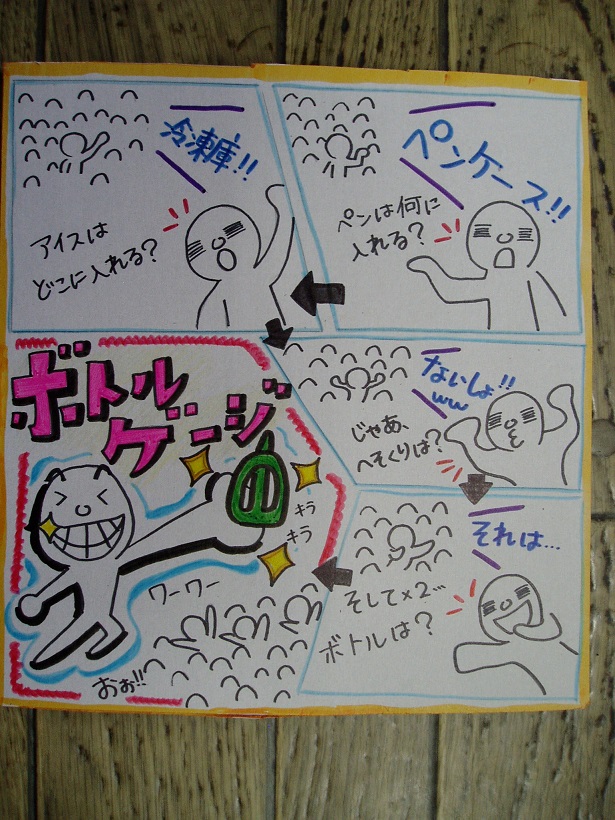 ペンケース!!
ペンは何に
入れる?
冷凍庫!!
アイスは
どこに入れる?
ないしょ!!
ww
じゃあ、
へそくりは?
それは…
そして×2…
ボトルは?
ボトル
ゲージ
キラ
キラ
ワーワー
おぉ!!